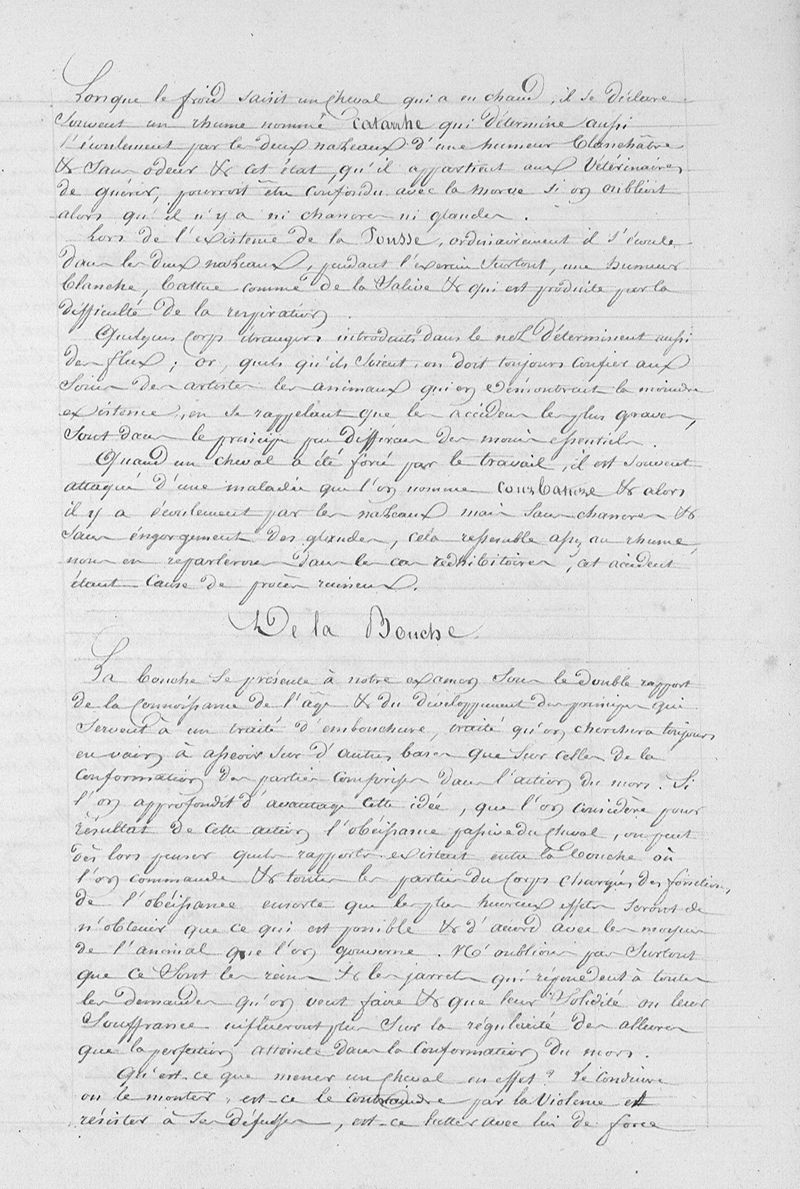 Lorsque le froid saisit un cheval qui a eu chaud, il se déclare
souvent un rhume nommé catarrhe qui détermine aussi
l'écoulement par les deux nazeaux d'une humeur blanchâtre
& sans odeur & cet état, qu'il appartient aux Vétérinaires
de guérir, pourroit être confondu avec la morve si on oublioit
alors qu'il n'y a ni chancres ni glandes.
Lors de l'existence de la Pousse, ordinairement il s'écoule
dans les deux nazeaux, pendant l'exercice surtout, une humeur
blanche, battue comme de la Salive & qui est produite par la
difficulté de la respiration.
Quelques corps étrangers introduits dans le nez déterminent aussi
des flux; or, quels qu'ils soient, on doit toujours confier aux
soins des artistes les animaux qui en démontrent la moindre
existence, en se rappelant que les accidens les plus graves,
sont dans le principe peu différens des moins essentiels.
Quand un cheval a été forcé par le travail, il est souvent
attaqué d'une maladie que l'on nomme courbature & alors
il y a écoulement par les nazeaux mais sans chancres &
sans éngorgement des glandes, cela ressemble assez au rhume,
nous en reparlerons dans les cas redhibitoires, cet accident
étant cause de procès ruineux.
De la Bouche.
La bouche se présente à notre examen sous le double rapport
de la connoissance de l'âge & du développement des principes qui
servent à un traité d'embouchure, traité qu'on cherchera toujours
en vain à asseoir sur d'autres bases que sur celles de la
conformation des parties comprises dans l'action du mors. Si
l'on approfondit d'avantage cette idée, que l'on considère pour
résultat de cette action l'obéissance passive du cheval, on peut
dès lors penser quels rapports existent entre la bouche où
l'on commande & toutes les parties du corps chargées des fonctions
de l'obéissance ensorte que les plus heureux effets seront de
n'obtenir que ce qui est possible & d'acord avec les moyens
de l'animal que l'on gouverne. N'oublions pas surtout
que ce sont les reins & les jarrets qui répondent à toutes
les demandes qu'on veut faire & que leur solidité ou leur
souffrance influeront plus sur la régularité des allures
que la perfection atteinte dans la conformation du mors.
Qu'est-ce que mener un cheval en effet? Le conduire
ou le monter, est-ce le contraindre par la violence et
résister à ses défenses, est-ce lutter avec lui de force